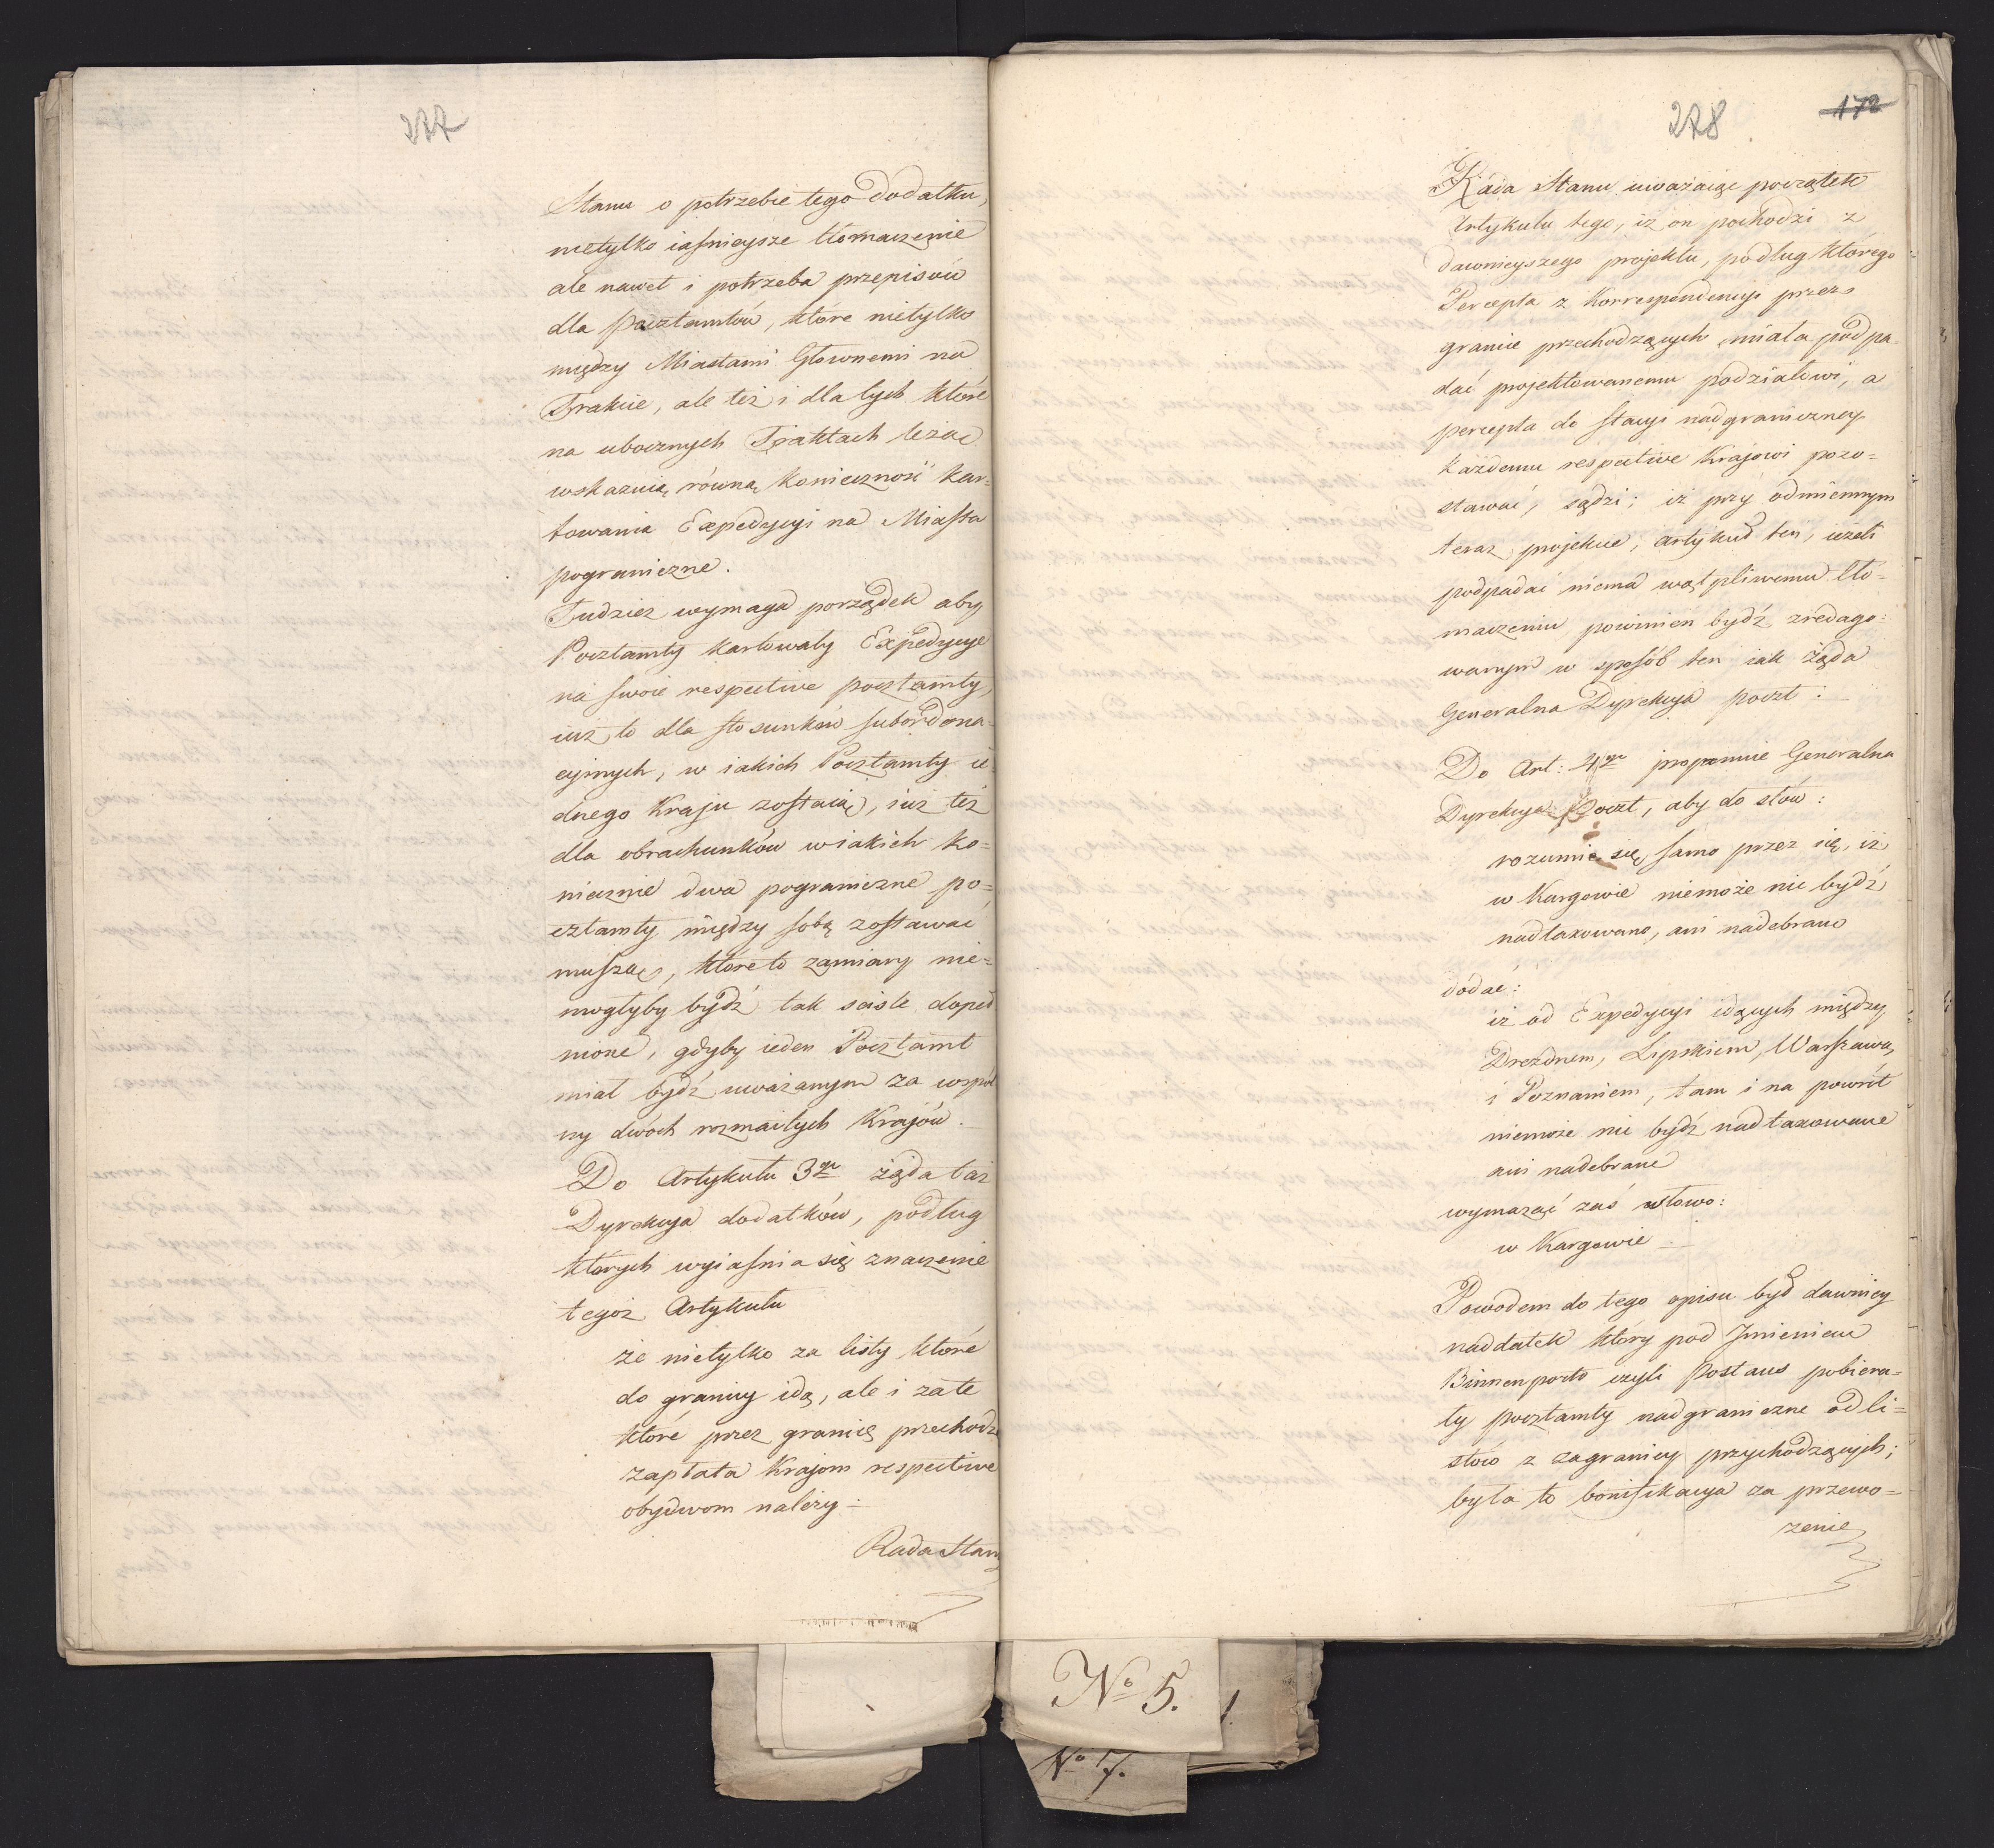 277
Stanu o potrzebie tego dodatku,
nietylko iaśnieysze tłomaczenie
ale nawet i potrzeba przepisów
dla pocztamtów, które nietylko
między Miastami Głownemi na
Trakcie, ale też i dla tych które
na ubocznych Traktach leżąc
wskazuią równą konieczność kar=
towania Expedycyi na Miasta
pograniczne.
Tudzież wymaga porządek aby
Pocztamty kartowały Expedycye
na swoie respective pocztamty,
iuż to dla stosunków subordona=
cyinych, w iakich Pocztamty ie=
dnego Kraju zostaią, iuż też
dla obrachunków w iakich ko=
niecznie dwa pograniczne po=
cztamty między sobą zostawać
muszą, które to zamiary nie=
mogłyby bydź tak ściśle dopeł
nione, gdyby ieden Pocztamt
miał bydź uważanym za wspól
ny dwóch rozmaitych Krajów.
Do Artykułu 3go żąda taż
Dyrekcya dodatków, podług
których wyiaśnia się znaczenie
tegoż Artykułu
że nietylko za listy które
do granicy idą, ale i za te
które przez granicę przechodzą
zapłata Krajom respective
obydwom należy.
Rada Stanu
278
172
Rada Stanu uważaiąc początek
Artykułu tego, iż on pochodzi z
dawnieyszego projektu, podług którego
Percepta z Korrespondencyi przez
granice przechodzących miała podpa=
dać projektowanemu podziałowi, a
percepta do stacyi nadgraniczney
każdemu respective Krajowi pozo=
stawać, sądzi; iż przy odmiennym
teraz projekcie, artykuł ten, ieżeli
podpadać niema wątpliwemu tło=
maczeniu powinien bydź zredago=
wanym w sposób ten iak żąda
Generalna Dyrekcya poczt.
Do Art: 4go proponuie Generalna
Dyrekcya Poczt, aby do słów:
rozumie się samo przez się, iż
w Kargowie niemoże nic bydź
nadtaxowano, ani nadebrano
dodać:
iż od Expedycyi idących między
Dreznem, Lipskiem, Warszawą,
i Poznaniem, tam i na powrót
niemoże nic bydź nadtaxowane
ani nadebrane
wymazać zaś słowo:
w Kargowie
Powodem do tego opisu był dawniey
naddatek który pod Imieniem
Binnenporto czyli Postaus pobiera=
ły pocztamty nadgraniczne od li=
stów z zagranicy przychodzących;
była to bonifikacya za przewo=
zenie
No 5.
1.
No 7.